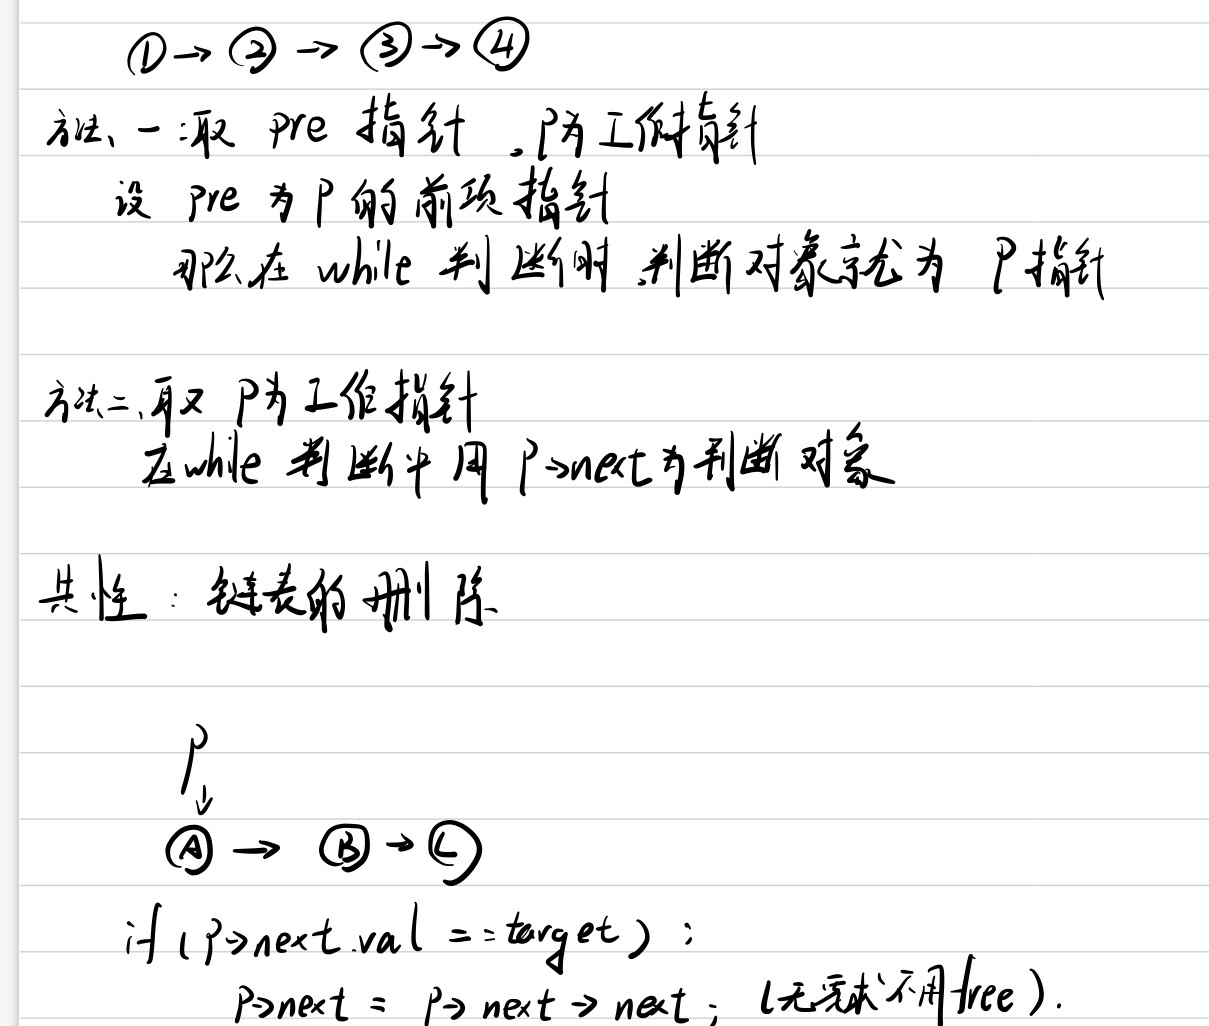 ① → ② → ③ → ④
方法一:取 pre 指针 。P为工作指针
设 pre 为 P 的前项指针
那么在 while 判断时,判断对象就为 P指针
方法二、取 P为工作指针
在while 判断中 用 P->next为判断对象
共性:链表的删除
P
↓
Ⓐ → Ⓑ → Ⓒ
if (P->next.val == target) :
P->next = P->next->next; (无要求不用free).